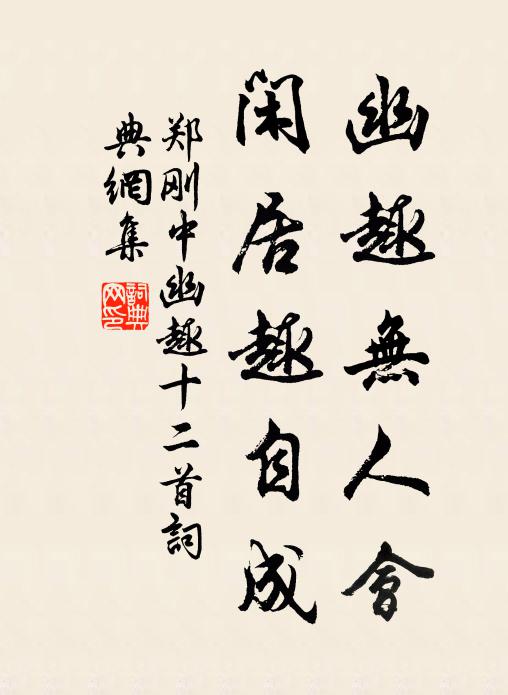 幽趣無人會
閑居趣自成
郑刚中幽趣十二首詞
典網集
詞典网印